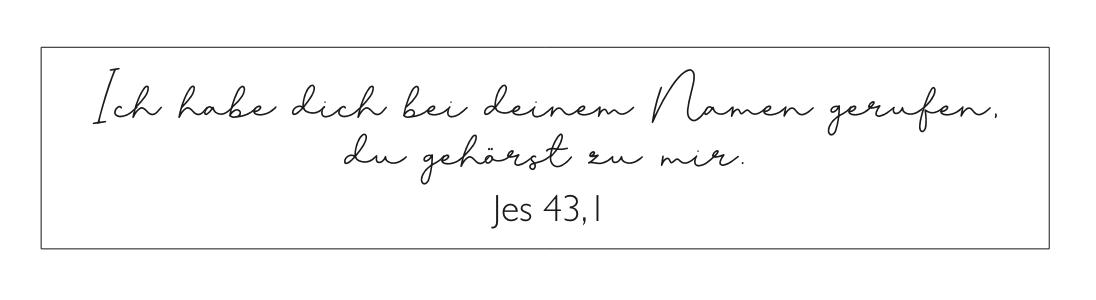 Ich habe dich bei deinem Namen gerufen,
du gehörst zu mir.
Jes 43,1